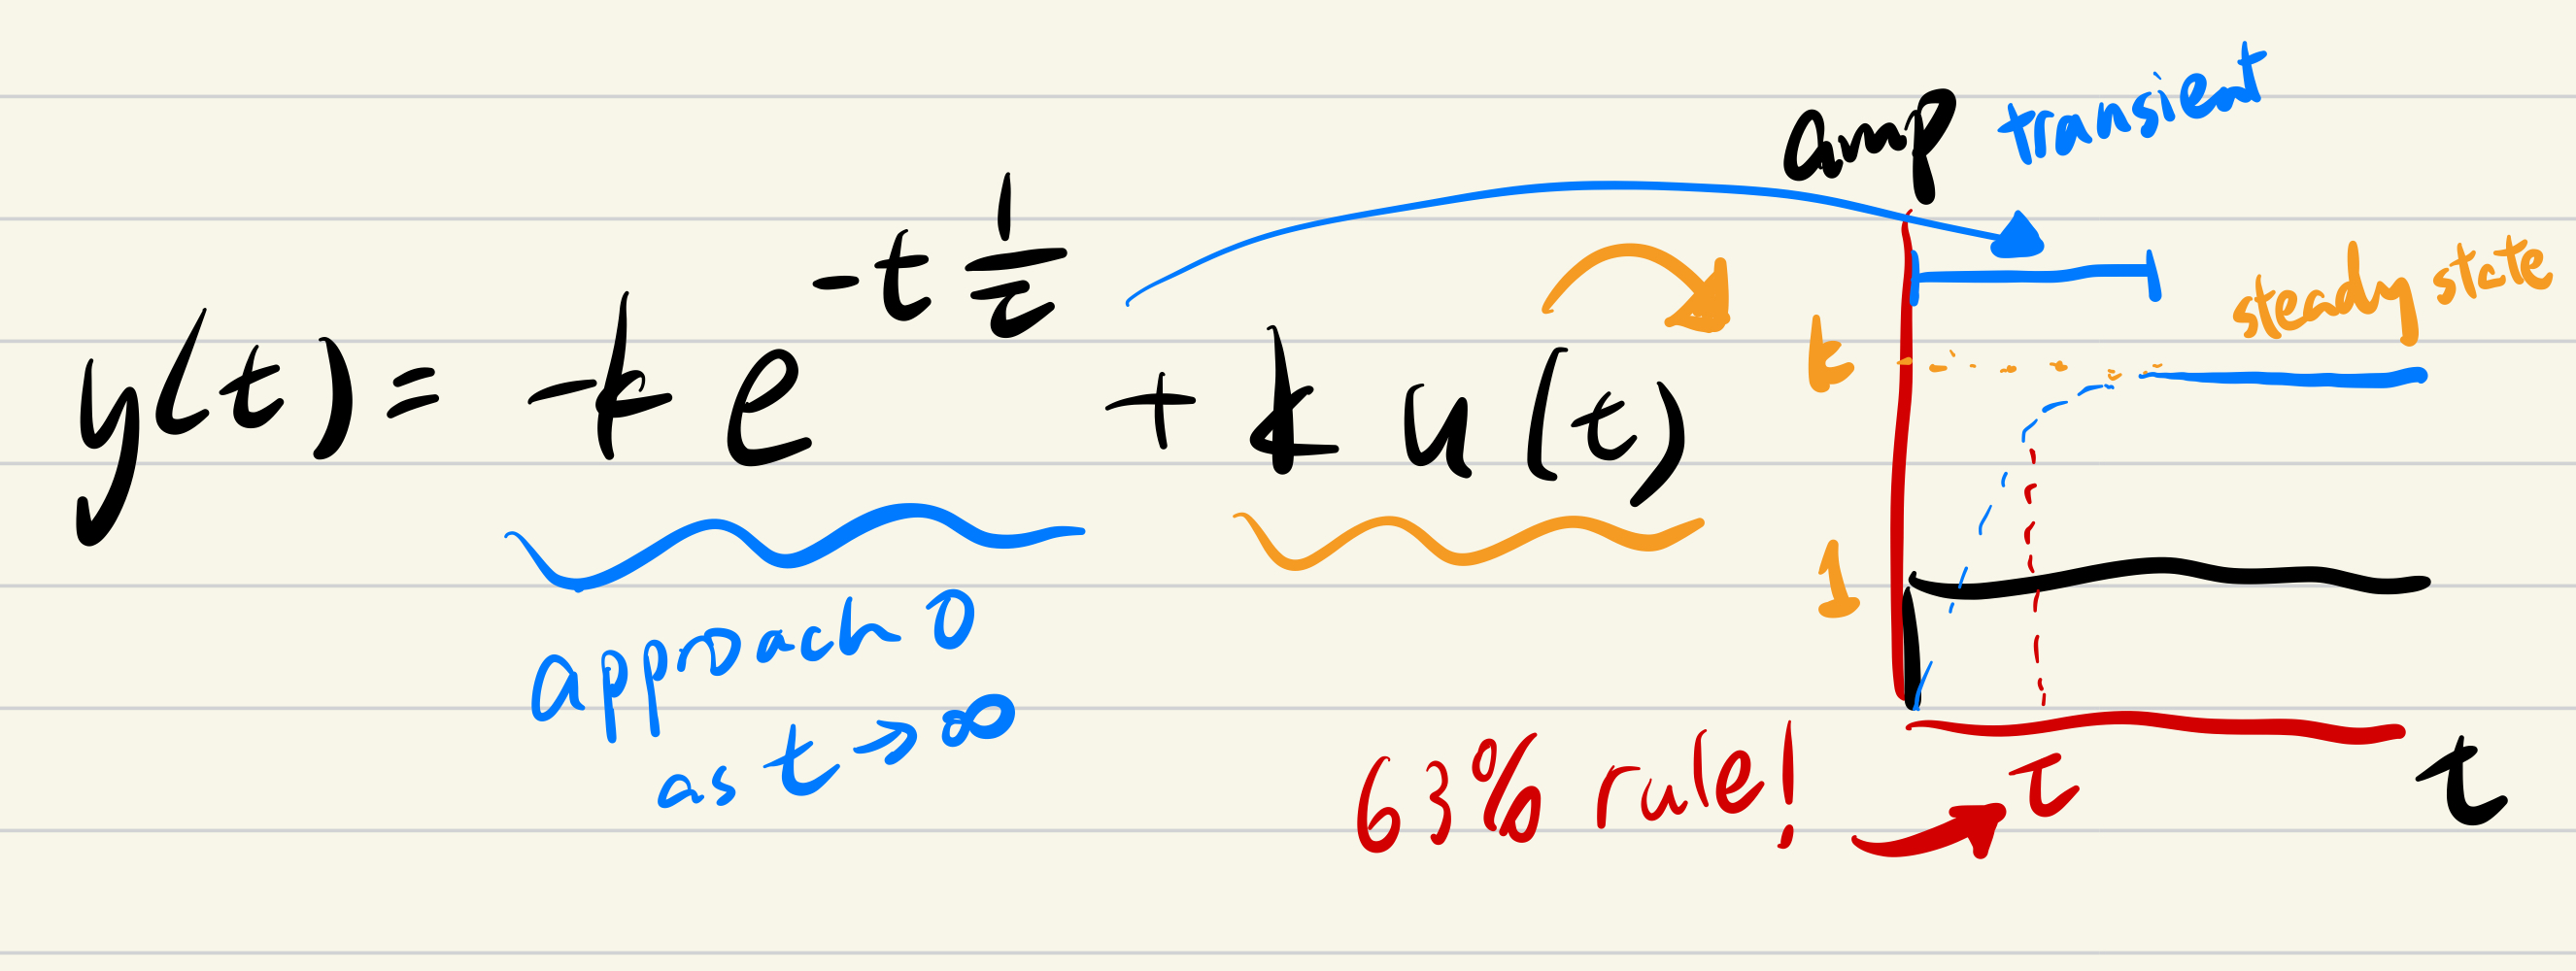 y(t) = -k e^{-t 1/τ} + k u(t)
approach 0
as t → ∞
amp
transient
steady state
k
1
63% rule!
τ
t